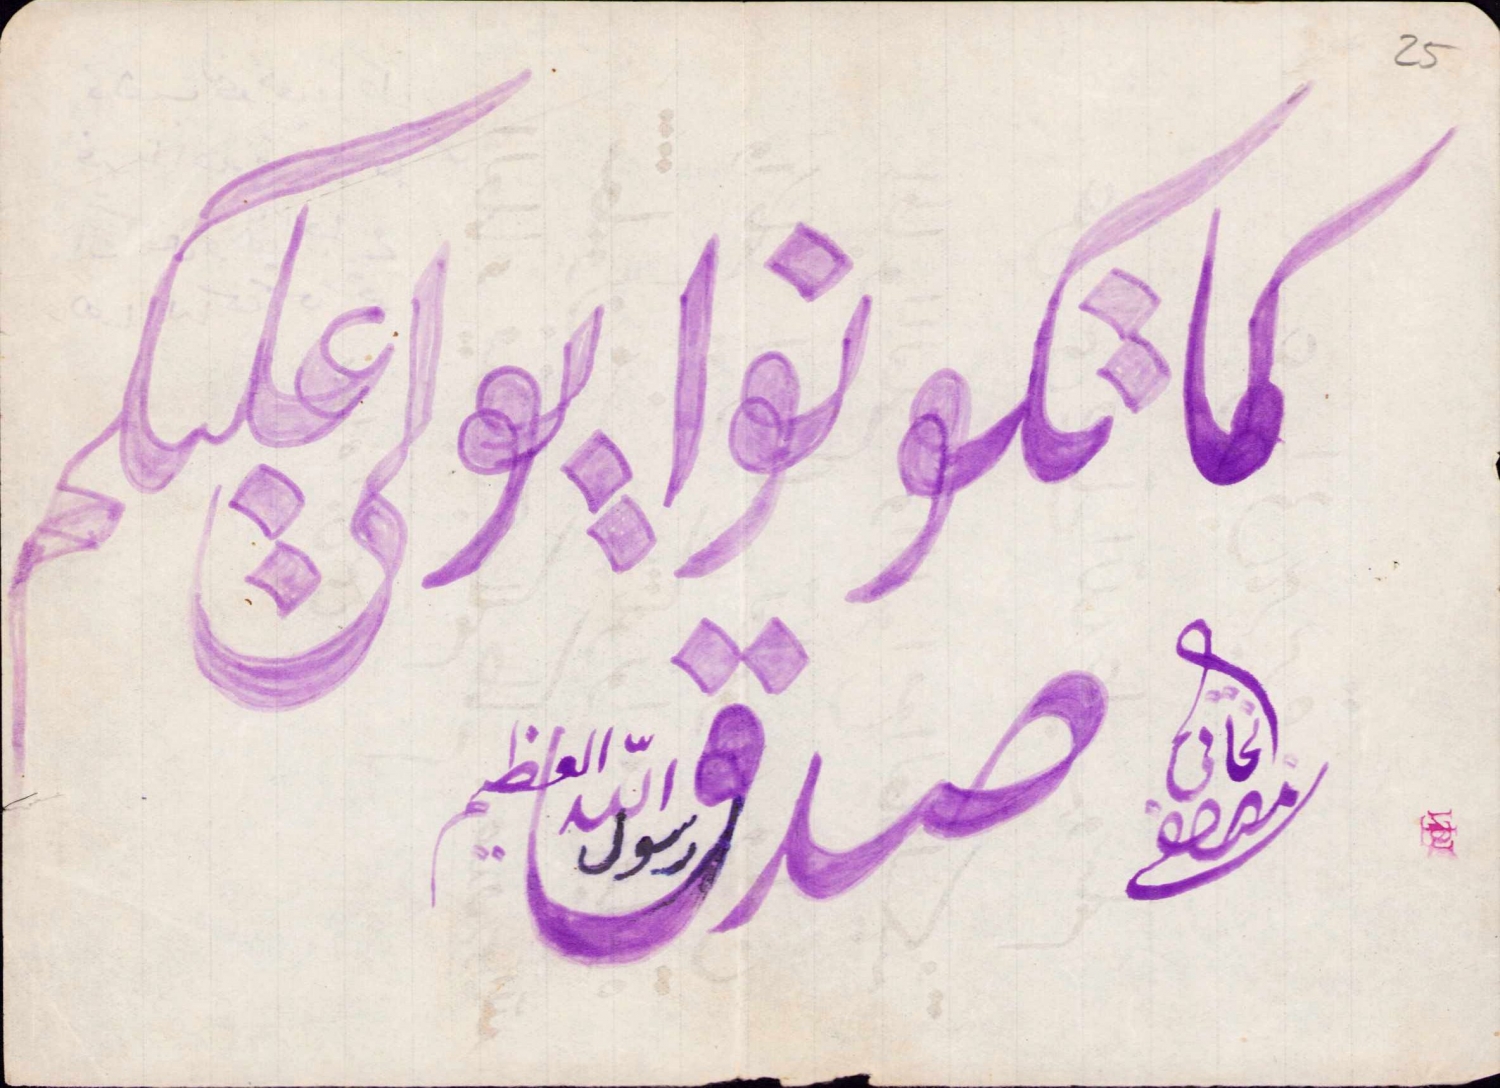 25
كما تكونوا يولى عليكم
صدق رسول الله العظيم
مصطفى